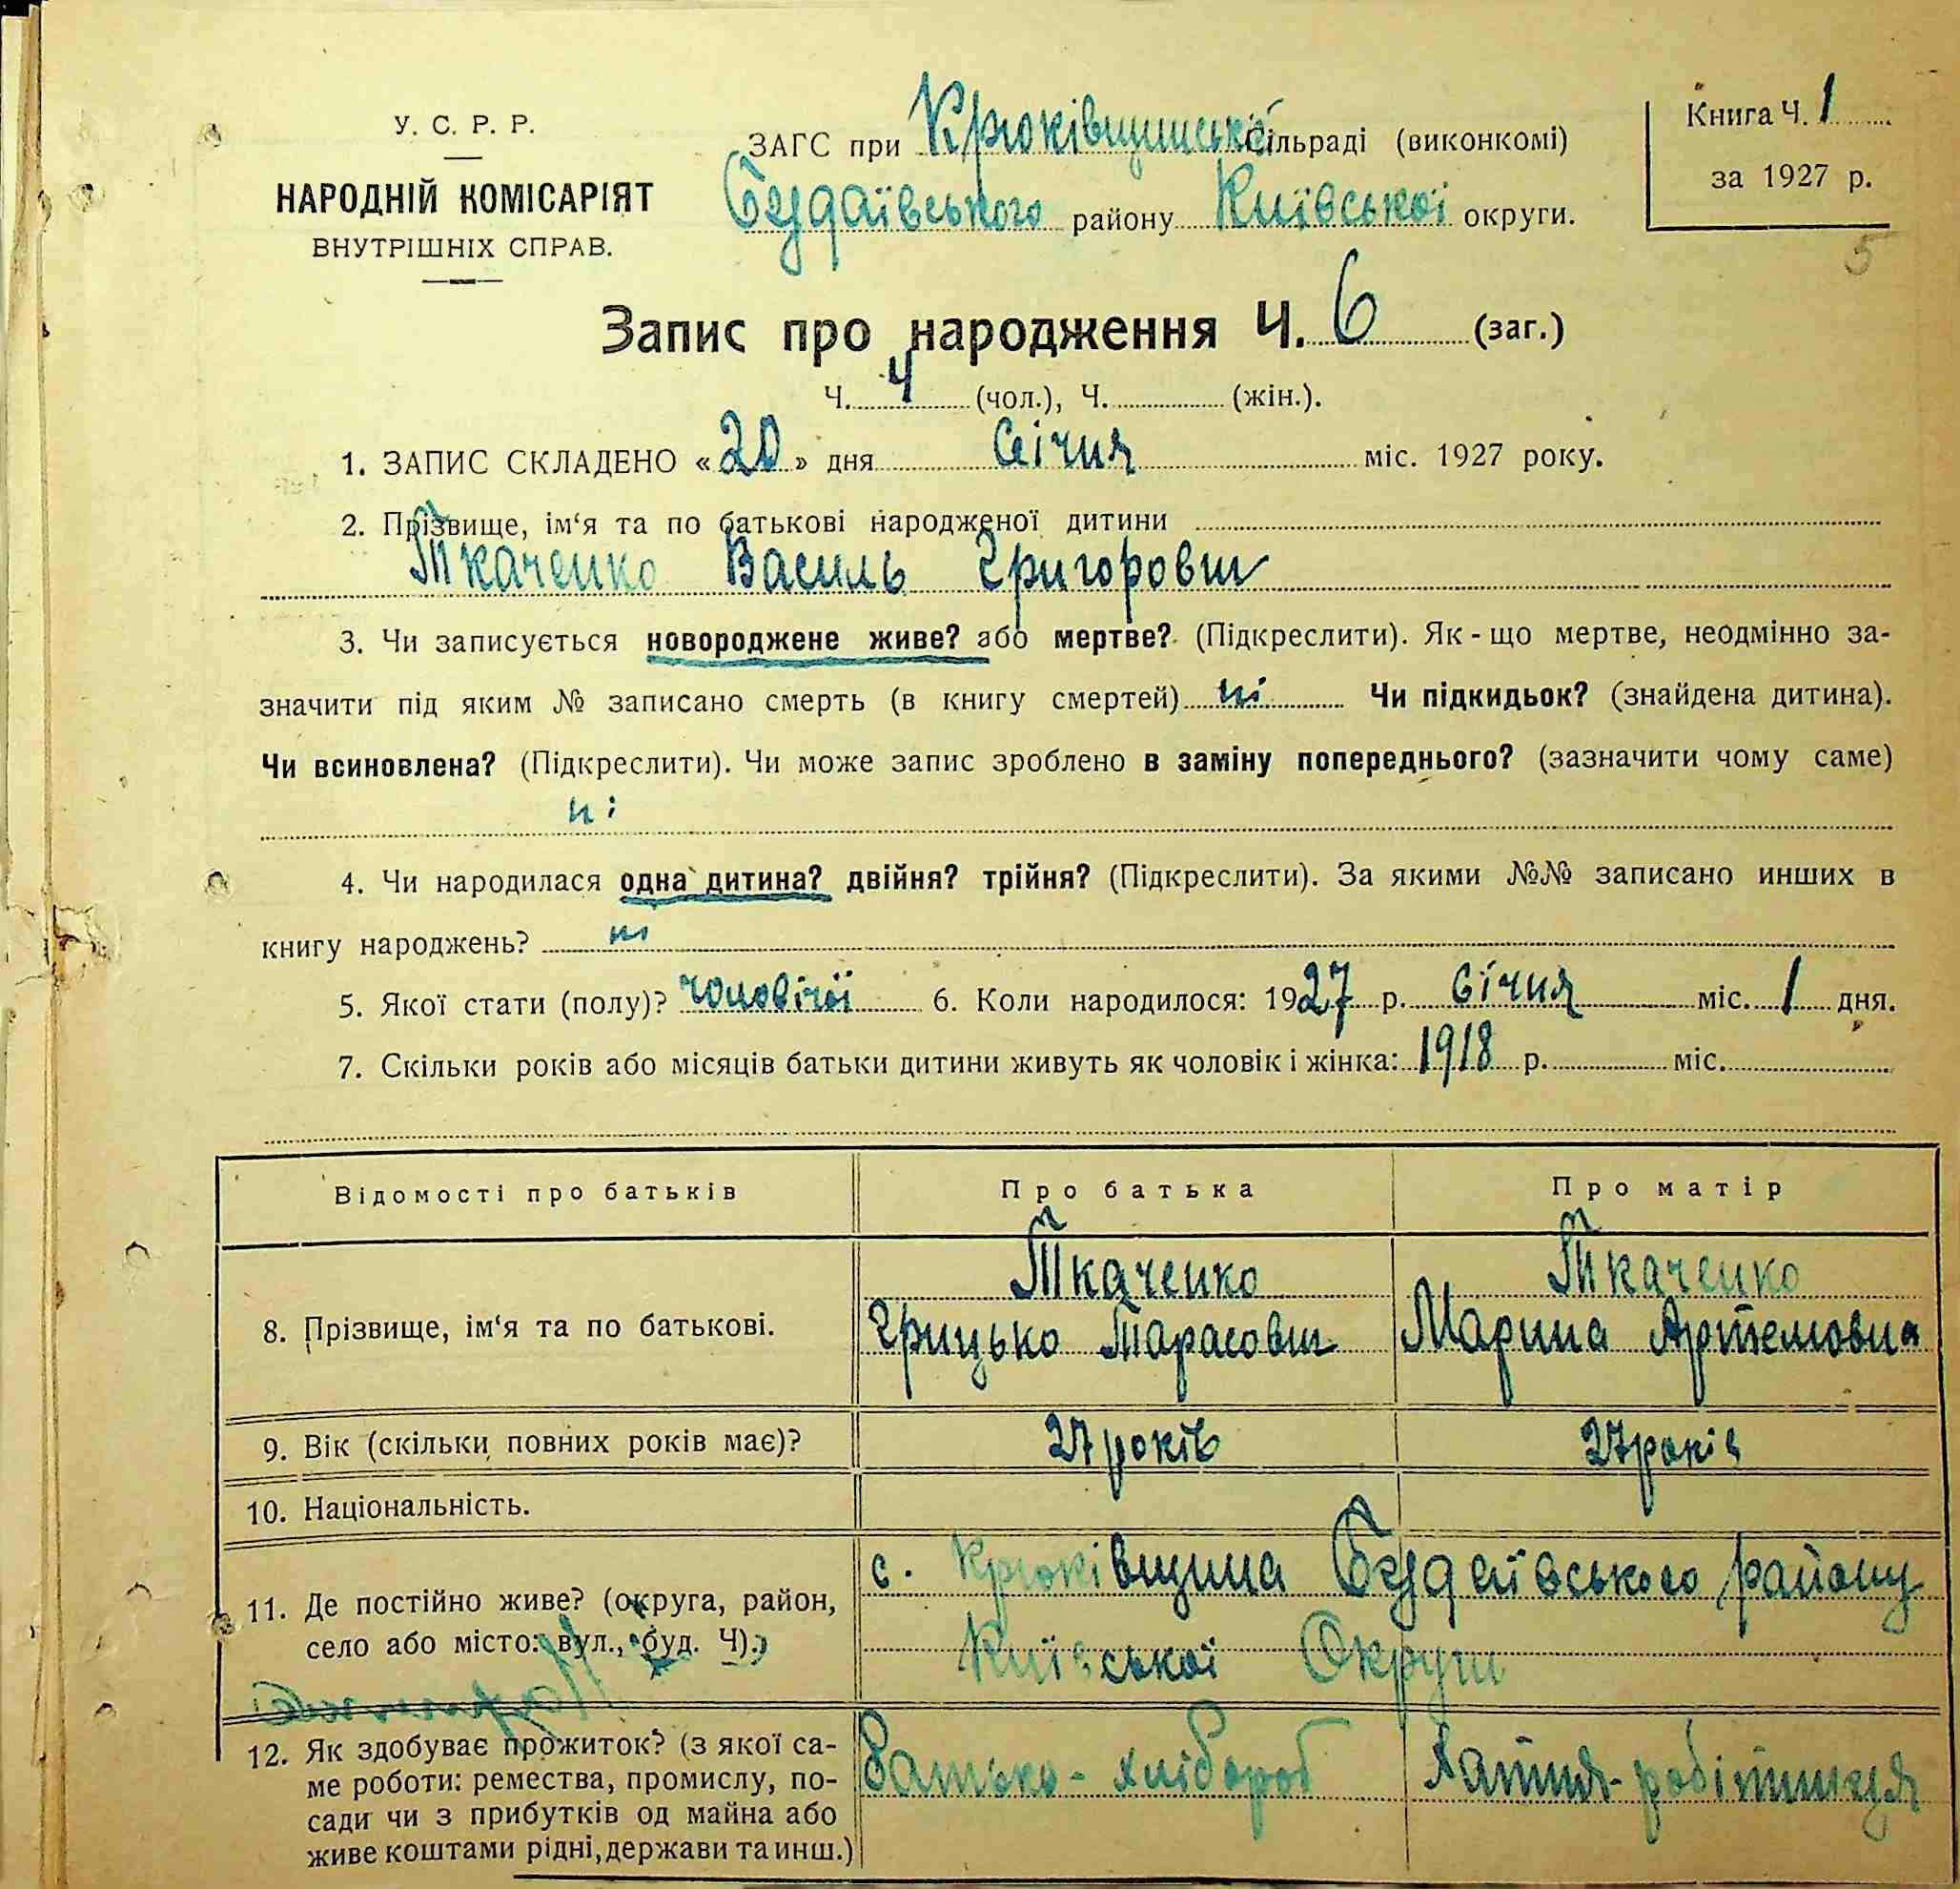 У. С. Р. Р.
НАРОДНІЙ КОМІСАРІЯТ
ВНУТРІШНІХ СПРАВ.
ЗАГС при Крюківщинській сільраді (виконкомі)
Будаївського району Київської округи.
Книга Ч. 1
за 1927 р.
5
Запис про народження Ч. 6 (заг.)
Ч. 4 (чол.), Ч. (жін.).
1. ЗАПИС СКЛАДЕНО «20» дня Січня міс. 1927 року.
2. Прізвище, ім‘я та по батькові народженої дитини
Ткаченко Василь Григорович
3. Чи записується новороджене живе? або мертве? (Підкреслити). Як-що мертве, неодмінно за-
значити під яким № записано смерть (в книгу смертей) ні Чи підкидьок? (знайдена дитина).
Чи всиновлена? (Підкреслити). Чи може запис зроблено в заміну попереднього? (зазначити чому саме)
ні
4. Чи народилася одна дитина? двійня? трійня? (Підкреслити). За якими №№ записано инших в
книгу народжень? ні
5. Якої стати (полу)? чоловічої 6. Коли народилося: 1927 р. Січня міс. 1 дня.
7. Скільки років або місяців батьки дитини живуть як чоловік і жінка: 1918 р. міс.
Відомості про батьків Про батька Про матір
8. Прізвище, ім‘я та по батькові.
Ткаченко
Грицько Тарасович
Ткаченко
Марина Артемовна
9. Вік (скільки повних років має)? 27 років 27 років
10. Національність.
11. Де постійно живе? (округа, район,
село або місто: вул., буд. Ч).
с. Крюківщина Будаївського району
Київської Округи
12. Як здобуває прожиток? (з якої са-
ме роботи: ремества, промислу, по-
сади чи з прибутків од майна або
живе коштами рідні, держави та инш.)
Батько - хлібороб
робітниця